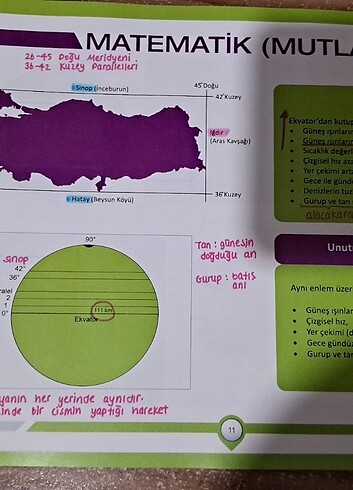 MATEMATİK (MUTLA
26-45 Doğu Meridyeni.
36-42 Kuzey Paralelleri
45°Doğu
Sinop (İnceburun)
42°Kuzey
Iğdır
(Aras Kavşağı)
36°Kuzey
Hatay (Beysun Köyü)
Ekvator'dan kutup
Güneş ışınların
Güneş ışınların
Sıcaklık değerl
Çizgisel hız aza
Yer çekimi arta
Gece ile günd
Denizlerin tuz
Gurup ve tan
alacakara
Unut
Aynı enlem üzer
Güneş ışınlar
Çizgisel hız,
Yer çekimi (d
Gece gündüz
Gurup ve tan
90°
sinop
42°
36°
ralel
2
1
0°
111 km
Ekvator
Tan : güneşin
doğduğu an
Gurup : batış
anı
yanın her yerinde aynıdır.
inde bir cismin yaptığı hareket
11